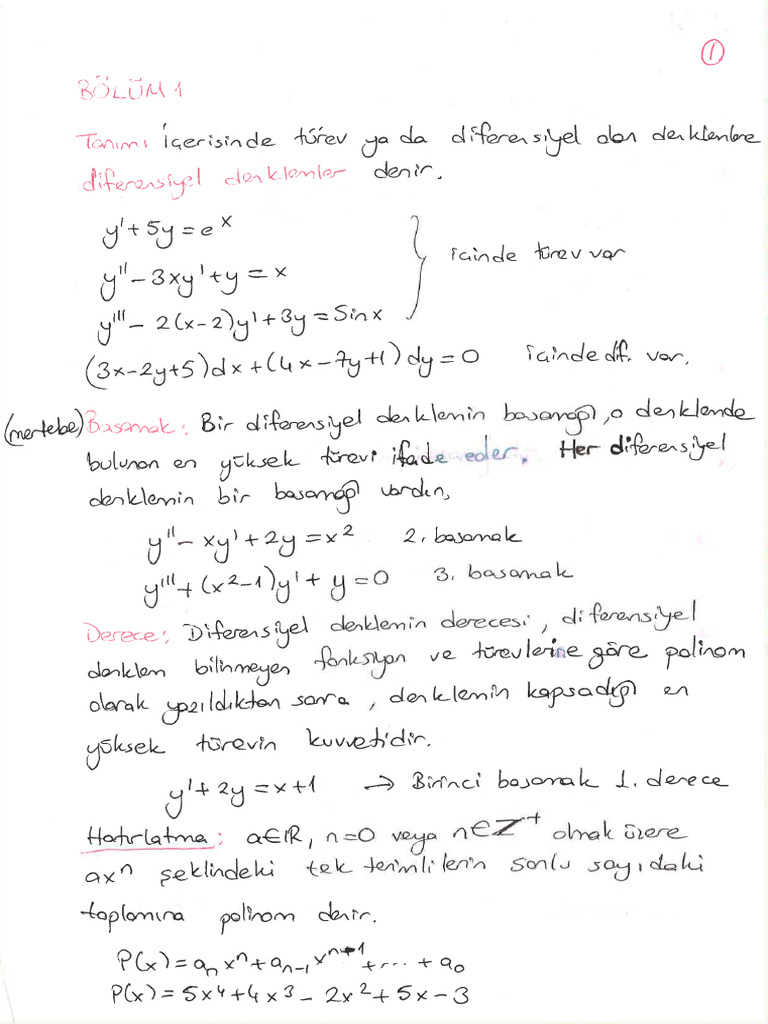 ①
BÖLÜM 1
Tanım: İçerisinde türev ya da diferensiyel olan denklemlere
diferensiyel denklemler denir.
y' + 5y = eˣ
y'' − 3xy' + y = x
içinde türev var
y''' − 2(x−2)y' + 3y = Sinx
(3x−2y+5)dx + (4x−7y+1)dy = 0 içinde dif. var.
(mertebe) Basamak: Bir diferensiyel denklemin basamağı, o denklemde
bulunan en yüksek türevi ifade eder. Her diferensiyel
denklemin bir basamağı vardır.
y'' − xy' + 2y = x² 2. basamak
y''' + (x²−1)y' + y = 0 3. basamak
Derece: Diferensiyel denklemin derecesi, diferensiyel
denklem bilinmeyen fonksiyon ve türevlerine göre polinom
olarak yazıldıktan sonra, denklemin kapsadığı en
yüksek türevin kuvvetidir.
y' + 2y = x+1 → Birinci basamak 1. derece
Hatırlatma: a∈ℝ, n=0 veya n∈Z⁺ olmak üzere
axⁿ şeklindeki tek terimlilerin sonlu sayıdaki
toplamına polinom denir.
P(x) = aₙxⁿ + aₙ₋₁xⁿ⁻¹ + ... + a₀
P(x) = 5x⁴ + 4x³ − 2x² + 5x − 3